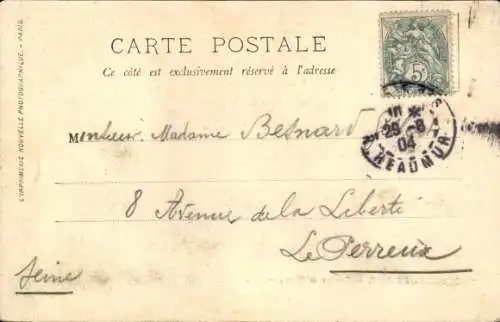 CARTE POSTALE
Ce côté est exclusivement réservé à l'adresse
5c
28-8
04
REAUMUR
Monsieur Madame Besnard
8 Avenue de la Liberté
Le Perreux
Seine
L'IMPRIMERIE NOUVELLE PHOTOGRAPHIQUE. - PARIS.